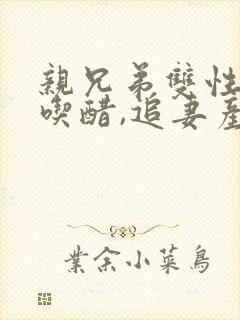 親兄弟雙性
喫醋,追妻產
業余小菜鳥